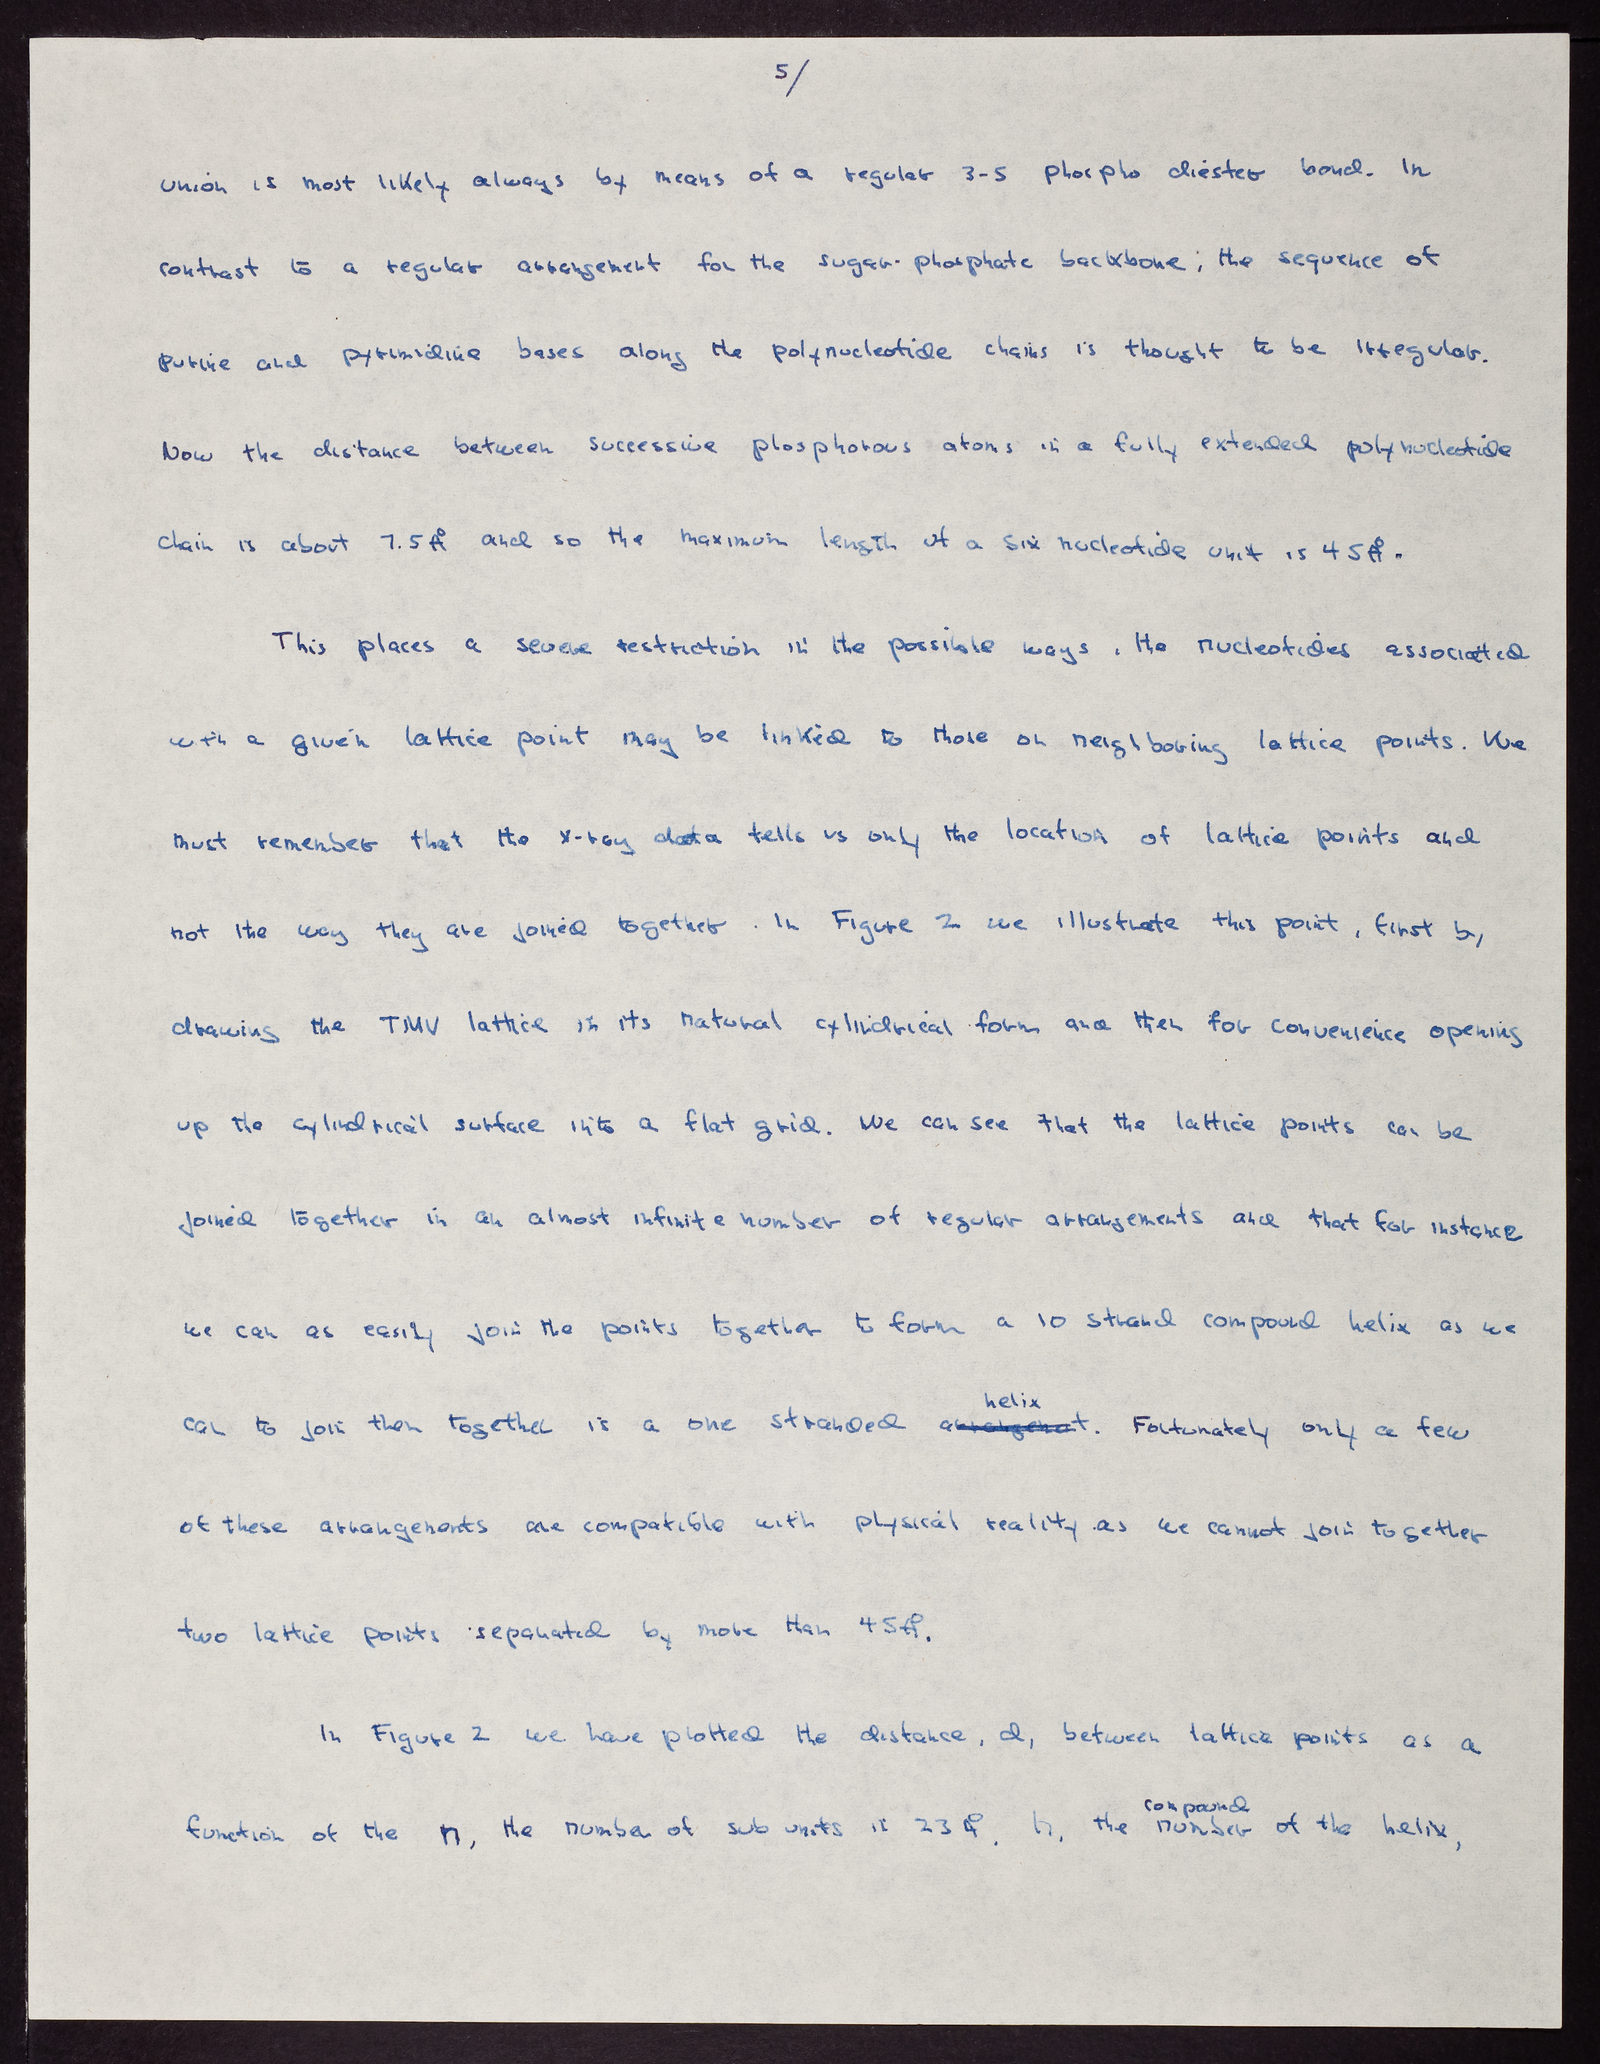 5/
union is most likely always by means of a regular 3-5 phospho diester bond. In
contrast to a regular arrangement for the sugar-phosphate backbone; the sequence of
purine and pyrimidine bases along the polynucleotide chains is thought to be irregular.
Now the distance between successive phosphorous atoms in a fully extended polynucleotide
chain is about 7.5Å and so the maximum length of a six nucleotide unit is 45Å.
This places a severe restriction in the possible ways, the nucleotides associated
with a given lattice point may be linked to those on neighboring lattice points. We
must remember that the x-ray data tells us only the location of lattice points and
not the way they are joined together. In Figure 2 we illustrate this point, first by
drawing the TMV lattice in its natural cylindrical form and then for convenience opening
up the cylindrical surface into a flat grid. We can see that the lattice points can be
joined together in an almost infinite number of regular arrangements and that for instance
we can as easily join the points together to form a 10 strand compound helix as we
helix
can to join them together is a one stranded arrangement. Fortunately only a few
of these arrangements are compatible with physical reality as we cannot join together
two lattice points separated by more than 45Å.
In Figure 2 we have plotted the distance, d, between lattice points as a
compound
function of the n, the number of sub units in 23Å, n, the number of the helix,